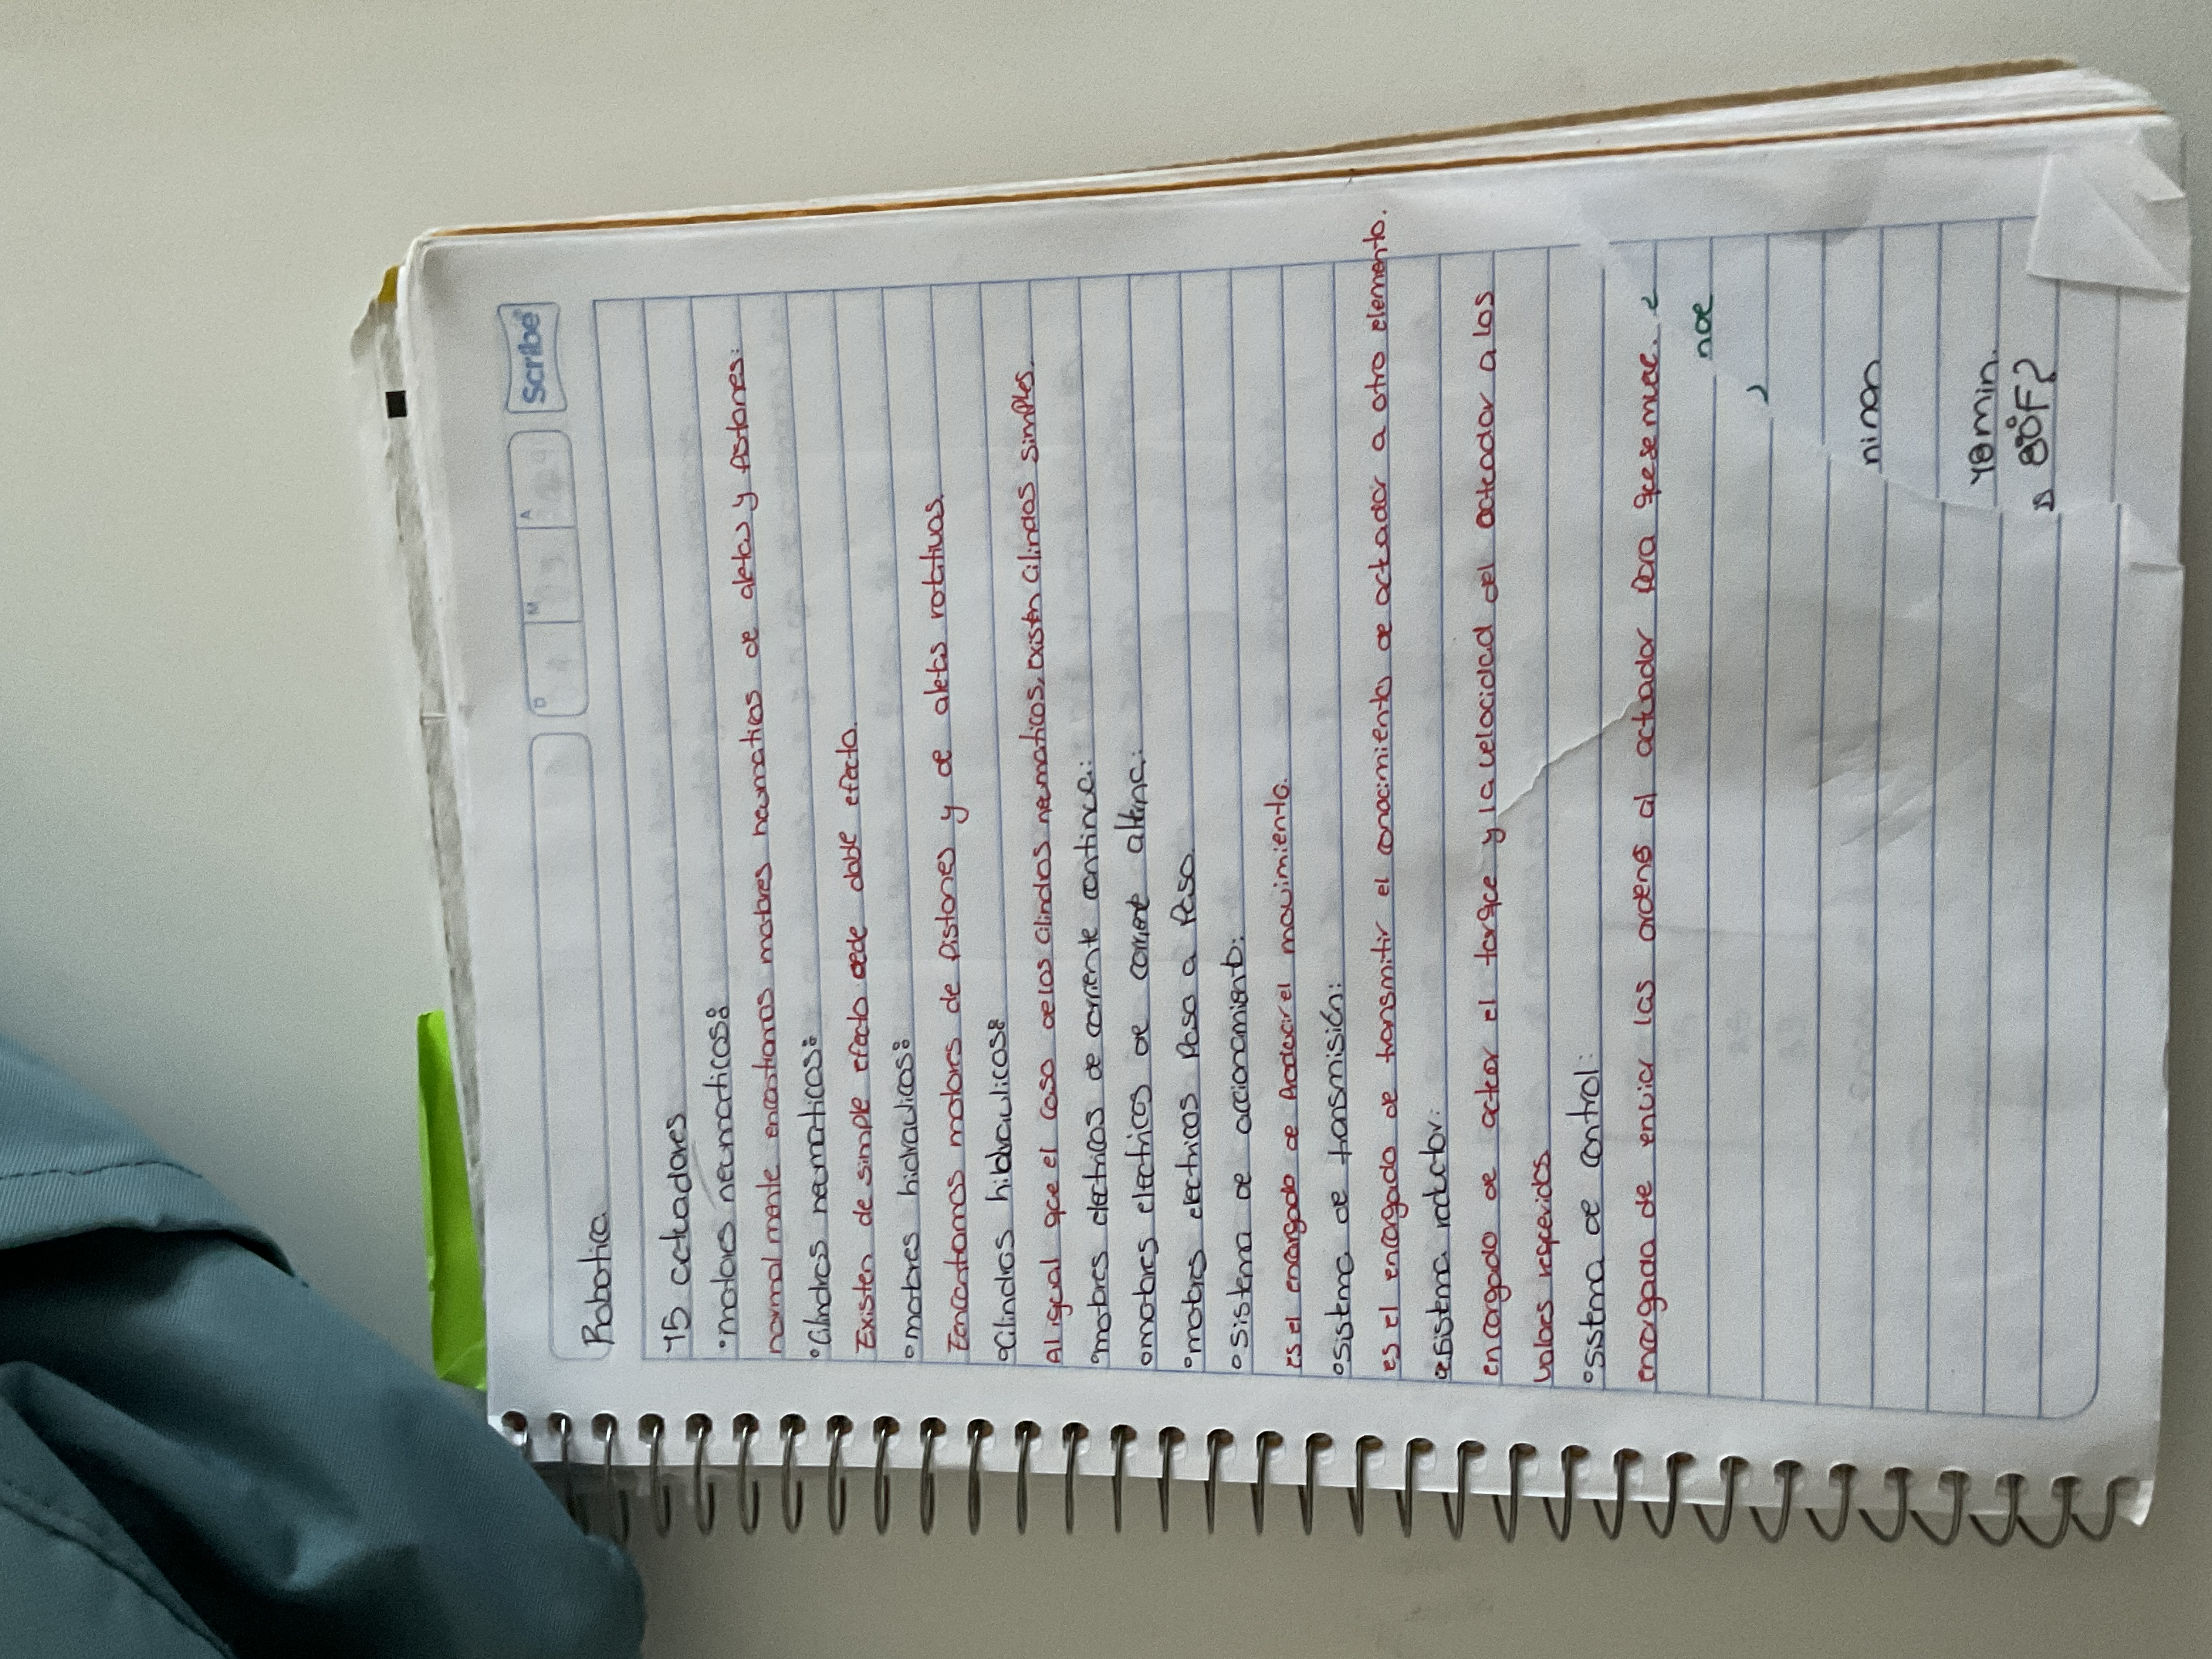 Scribe
D M A
Robotica.
45 actuadores
°motores neumaticos:
normalmente encontramos motores neumaticos de aletas y pistones:
°Cilindros neumaticos:
Existen de simple efecto dede doble efecto.
°motores hidraulicos:
Encontamos motores de pistones y de alets rotativos.
°Cilindros hidraulicos:
Al igual que el caso de los cilindros neumaticos, existen cilindros simples.
°motores electricos de corriente continua:
°motores electricos de corriente alterna:
°motores electricos Paso a Paso.
°sistema de accionamiento:
es el encargado de Producir el movimiento.
°sistema de transmisión:
es el encargado de transmitir el conocimiento de actuador a otro elemento.
°sistema reductor:
encargado de actuar el torque y la velocidad del actuador a los
valores requeridos
°sistema de control:
encargada de enviar las ordenes al actuador Para que se muee.
noe
ninan
48min.
80°F?